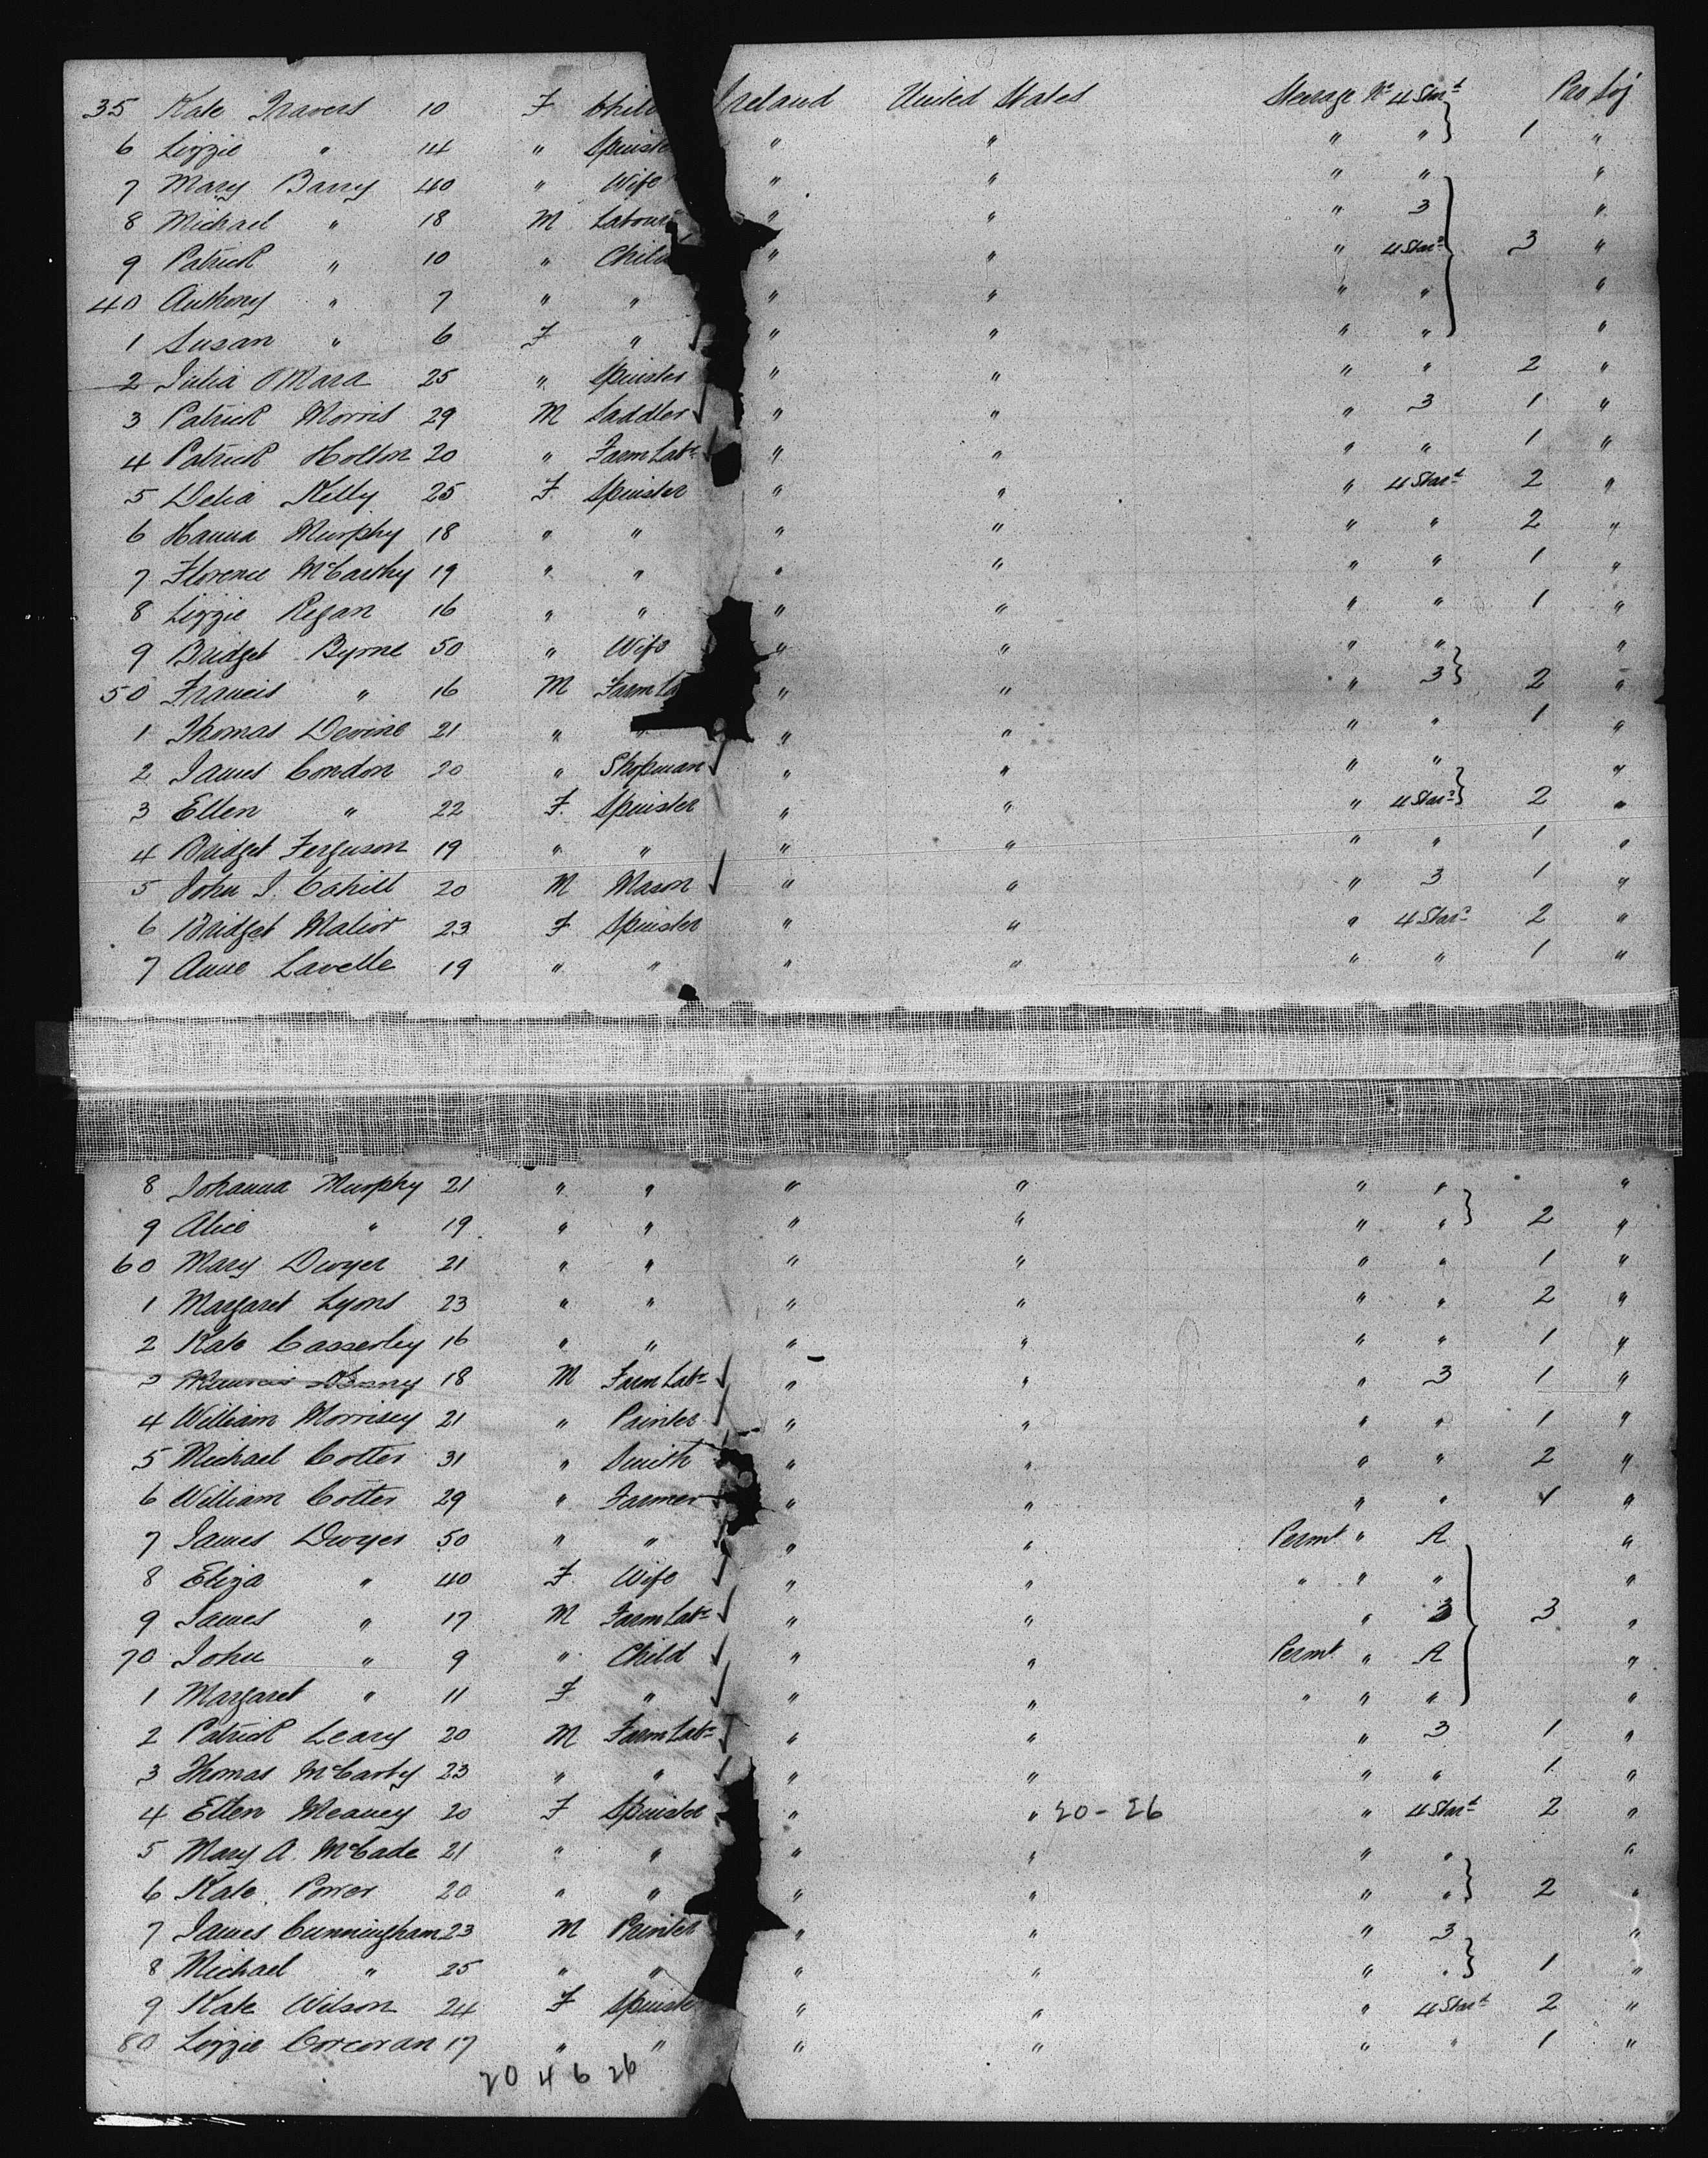 35 Kate Travers 10 F Child Ireland United States Steerage No 4 Starbd Pro Soj
6 Lizzie " 14 " Spinste " " " " } 1 "
7 Mary Barry 40 " Wife " " " " "
8 Michael " 18 M Labour " " " 3 "
9 Patrick " 10 " Child " " " 4 Starbd } 3 "
40 Anthony " 7 " " " " " " "
1 Susan " 6 F " " " " " "
2 Julia OMara 25 " Spinster " " " " 2 "
3 Patrick Morris 29 M Saddler " " " 3 1 "
4 Patrick Holton 20 " Farm Labr " " " " 1 "
5 Delia Kelly 25 F Spinster " " " 4 Starbd 2 "
6 Hanna Murphy 18 " " " " " " 2 "
7 Florence McCarthy 19 " " " " " " 1 "
8 Lizzie Regan 16 " " " " " " 1 "
9 Bridget Byrne 50 " Wife " " " " "
50 Francis " 16 M Farm La " " " 3 } 2 "
1 Thomas Devine 21 " " " " " " 1 "
2 James Condon 20 " Shopman " " " " "
3 Ellen " 22 F. Spinster " " " 4 Starbd } 2 "
4 Bridget Ferguson 19 " " " " " " 1 "
5 John J. Cahill 20 M Mason " " " 3 1 "
6 Bridget 23 F Spinster " " " 4 Starbd 2 "
7 Anne Lavelle 19 " " " " " " 1 "
8 Johanna Murphy 21 " " " " " " "
9 Alice " 19 " " " " " " } 2 "
60 Mary Dwyer 21 " " " " " " 1 "
1 Margaret Lyons 23 " " " " " " 2 "
2 Kate Casserley 16 " " " " " " 1 "
3 18 M Farm Labr " " " 3 1 "
4 William Morrisey 21 " Painter " " " " 1 "
5 Michael Cotter 31 " Smith " " " " 2 "
6 William Cotter 29 " Farmer " " " " 1 "
7 James Dwyer 50 " " " " Permt " A "
8 Eliza " 40 F Wife " " " " " "
9 James " 17 M Farm Labr " " " 3 } 3 "
70 John " 9 " Child " " Permt " A "
1 Margaret " 11 F " " " " " " "
2 Patrick Leary 20 M Farm Labr " " " 3 1 "
3 Thomas McCarty 23 " " " " " " 1 "
4 Ellen Meaney 20 F Spinster " " 20-26 " 4 Starbd 2 "
5 Mary A. McCade 21 " " " " " " "
6 Kate Power 20 " " " " " " } 2 "
7 James Cunningham 23 M Printer " " " 3 "
8 Michael " 25 " " " " " " } 1 "
9 Kate Wilson 24 F Spinste " " " 4 Starbd 2 "
80 Lizzie Corcoran 17 " " " " " " 1 "
20 4 6 26